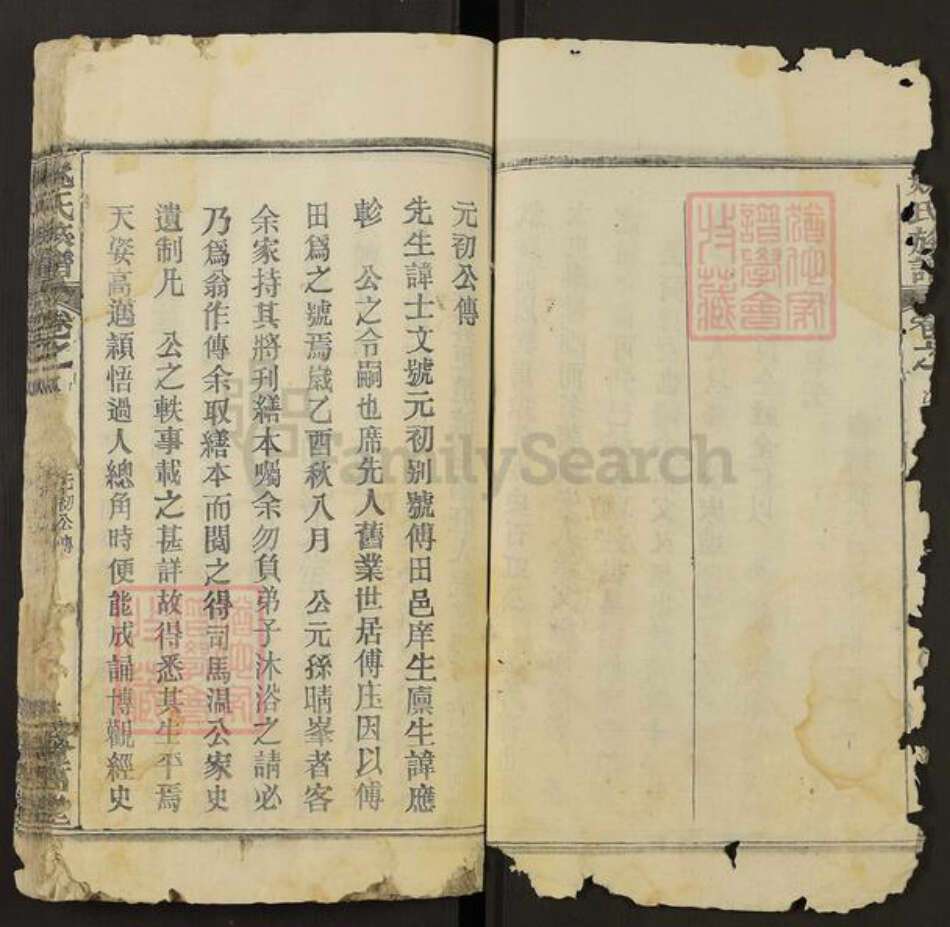 氏族譜
卷之
元初公傳
先生諱士文號元初別號傅田邑庠生廩生諱應
軫　公之令嗣也席先人舊業世居傅庄因以傅
田爲之號焉歲乙酉秋八月　公元孫晴峯者客
余家持其將刋繕本囑余勿負弟子沐浴之請必
乃爲翁作傳余取繕本而閱之得司馬溫公家史
遺制凡　公之軼事載之甚詳故得悉其生平焉
天姿高邁穎悟過人總角時便能成誦博觀經史
氏族譜
卷之
元初公傳
堂
FamilySearch